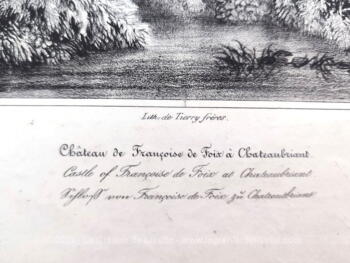 Lith. de Tierry frères.
Château de Françoise de Foix à Chateaubriant
Castle of Françoise de Foix at Chateaubriant
Schloß von Françoise de Foix zu Chateaubriant